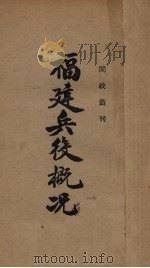 閩政叢刊
福建兵役概况